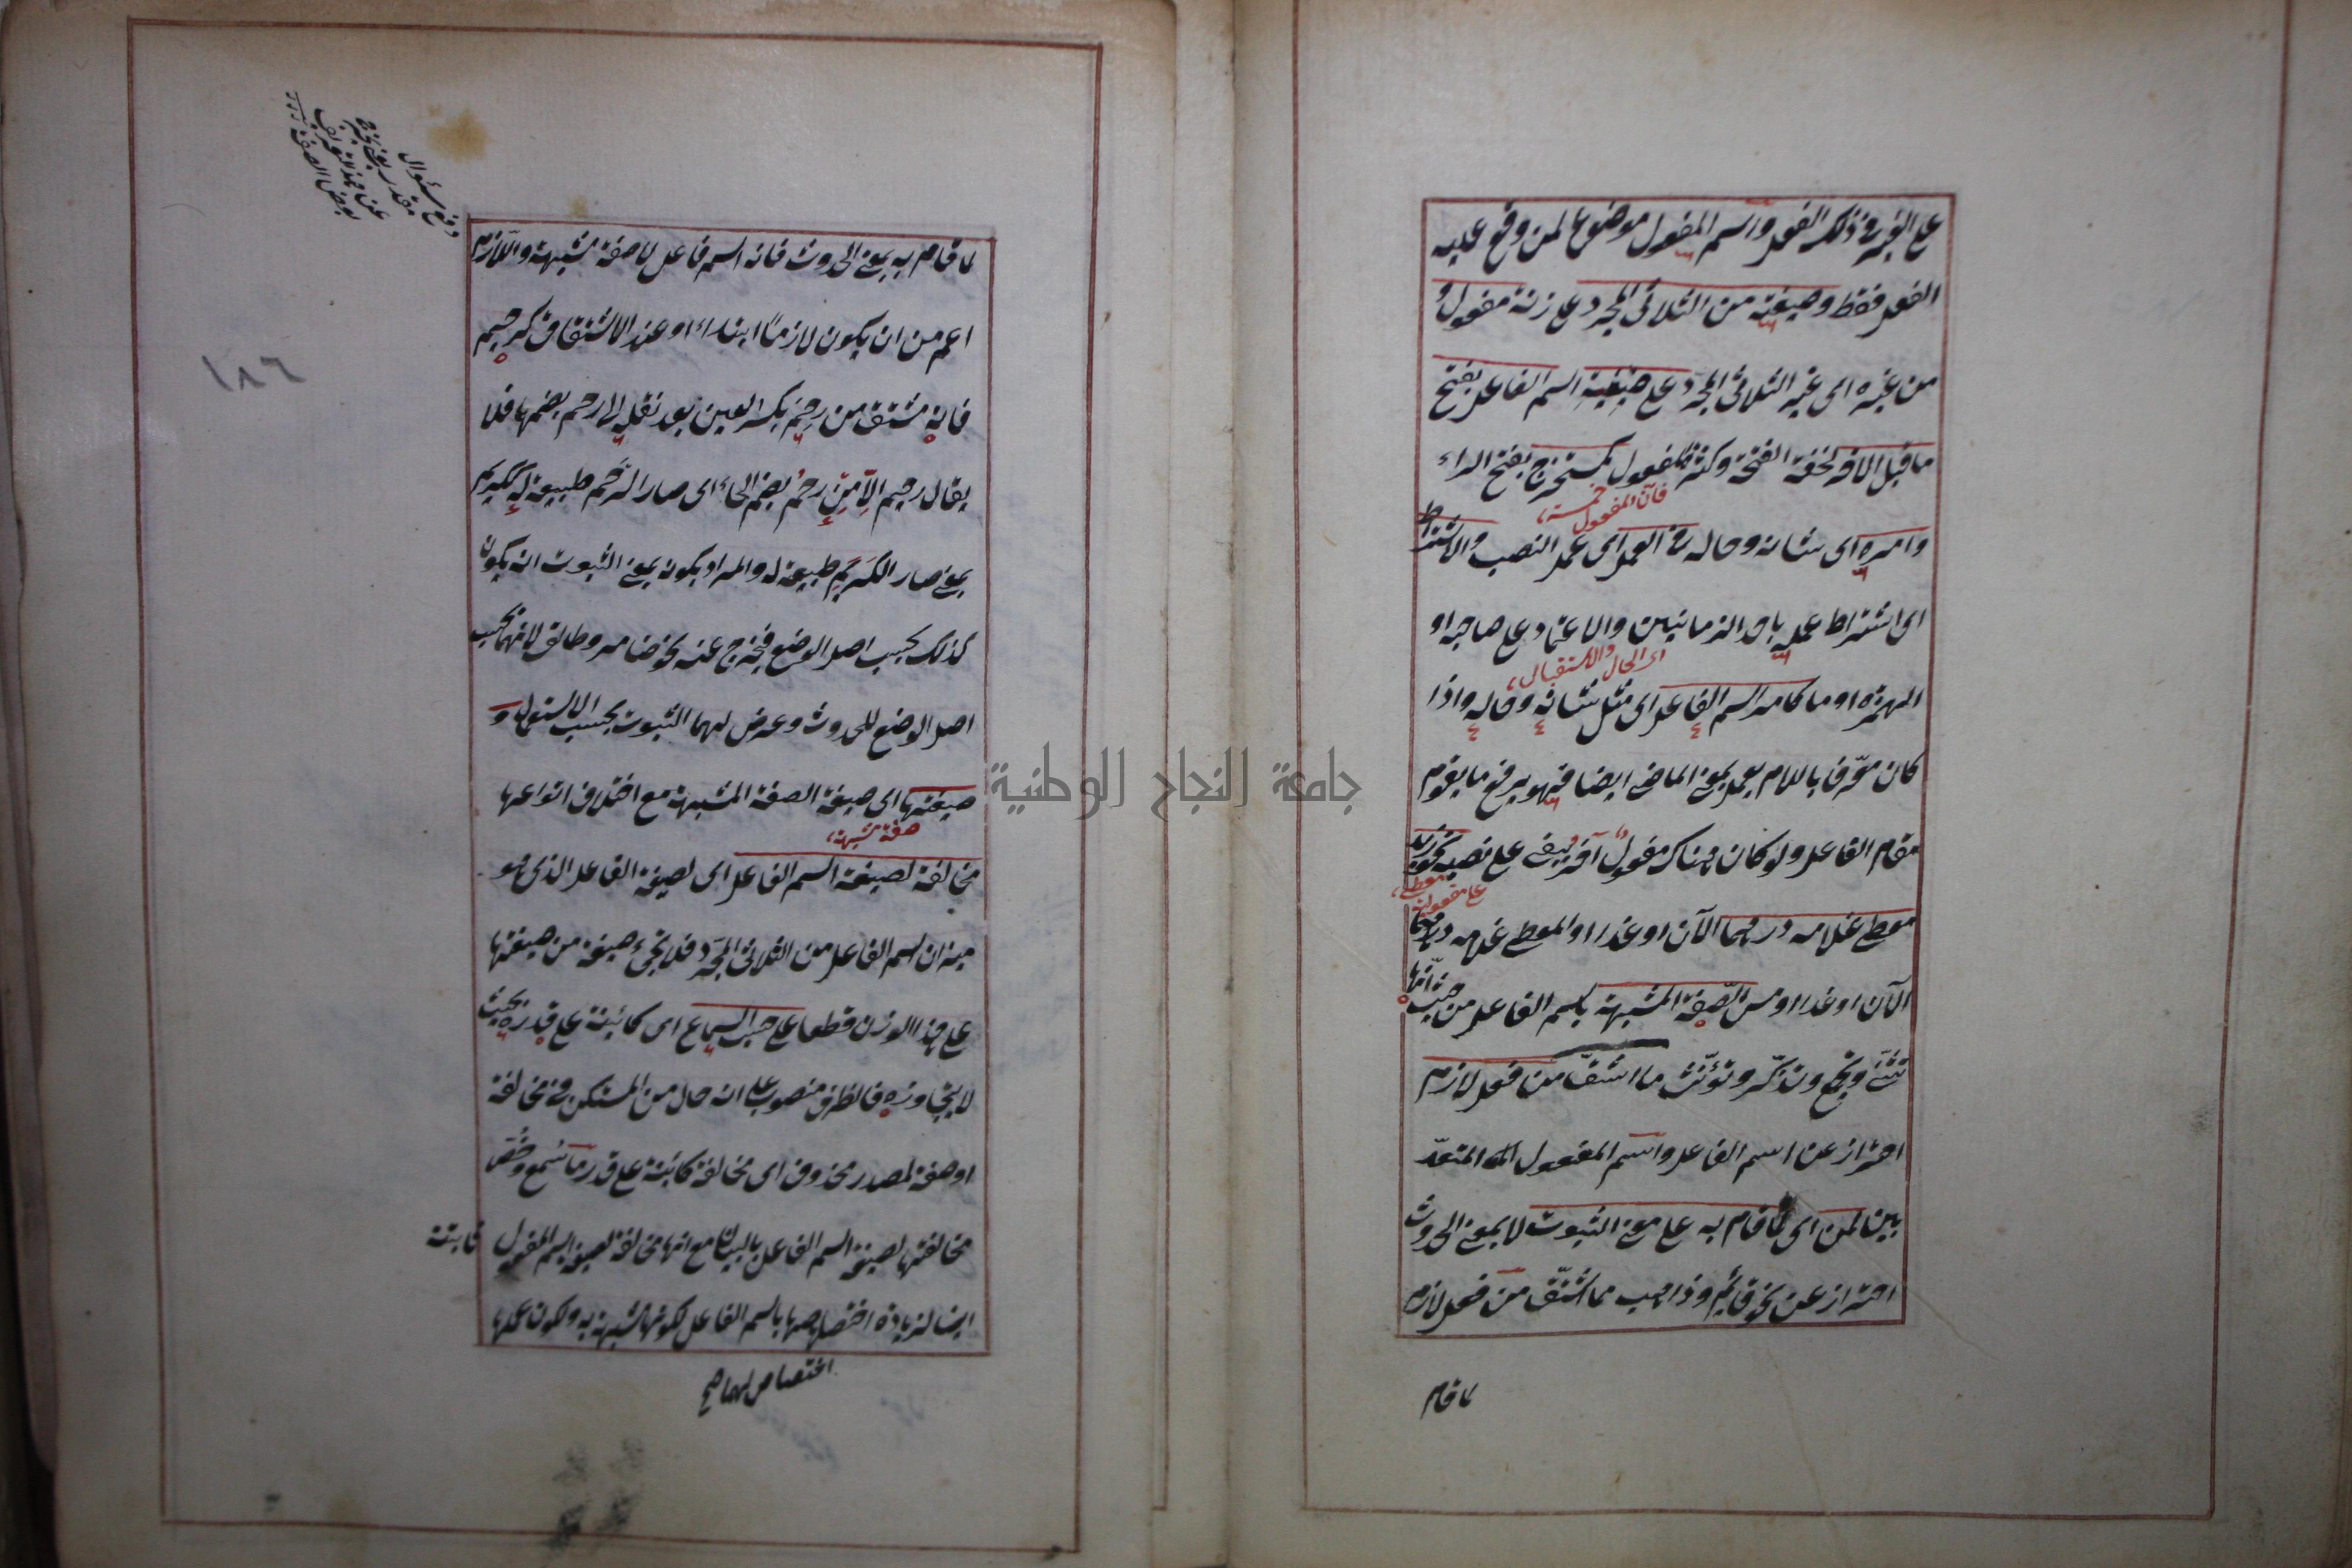 على الغير في ذلك الفعل واسم المفعول موضوع لمن وقع عليه
الفعل فقط وصيغته من الثلاثي المجرد على زنة مفعول و
من غيره اى غير الثلاثي المجرد على صيغة اسم الفاعل بفتح
ما قبل الاخر لخفة الفتحة وكثرة المفعول كمستخرج بفتح الراء
فان المفعول خمسة
وامره اى شانه وحاله في العمل اى عمل النصب والاشتراط
اى اشتراط عمله باحد الزمانين والاعتماد على صاحبه او
اى الحال والاستقبال
الهمزة او ما كامر اسم الفاعل اى مثل شانه وحاله واذا
كان معرفا باللام يعمل بمعنى الماضى ايضا فهو يرفع ما يقوم
مقام الفاعل ولو كان هناك مفعول آخر يبقى على نصبه نحو زيد
معطى
على مفعوليه
معطى غلامه درهما الآن او غدا او المعطى غلامه درهما
الآن او غدا او امس الصفة المشبهة باسم الفاعل من حيث انها
تثنى وتجمع وتذكر وتؤنث ما اشتق من فعل لازم
احتراز عن اسم الفاعل واسم المفعول المتعد
يين لمن اى لما قام به على معنى الثبوت لا بمعنى الحدوث
احتراز عن نحو قائم وذاهب مما اشتق من فعل لازم
لما قام
دفع سئوال
مقدر
عن هذا التعريف
بعض الصفة
١٨٦
لما قام به بمعنى الحدوث فانه اسم فاعل لا صفة مشبهة واللازم
اعم من ان يكون لازما ابتداء او عند الاشتقاق كرحيم
فانه مشتق من رحم بكسر العين بعد نقله الى رحم بضمها فلا
يقال رحيم الا من رحم بضم الحاء اى صار الرحم طبيعة له ككريم
بمعنى صار الكرم طبيعة له والمراد بكونه بمعنى الثبوت انه يكون
كذلك بحسب اصل الوضع فيخرج عنه نحو ضامر وطالق لانهما بحسب
اصل الوضع للحدوث وعرض لهما الثبوت بحسب الاستعمال و
صيغتها اى صيغة الصفة المشبهة مع اختلاف انواعها
صفة مشبهة
مخالفة لصيغة اسم الفاعل اى لصيغة الفاعل الذى هو
ميزان اسم الفاعل من الثلاثي المجرد فلا تجئ صيغة من صيغتها
على هذا الوزن قطعا على حسب السماع اى كائنة على قدره بحيث
لا يتجاوزه فالظرف منصوب على انه حال من المستكن في مخالفة
او صفة لمصدر محذوف اى مخالفة كائنة على قدر ما سمع وخص
مخالفتها لصيغة اسم الفاعل بالبيان مع انها مخالفة لصيغة اسم المفعول
ايضا لزيادة اختصاصها باسم الفاعل لكونها مشبهة به ولكون عملها
اختصاص لهما صح